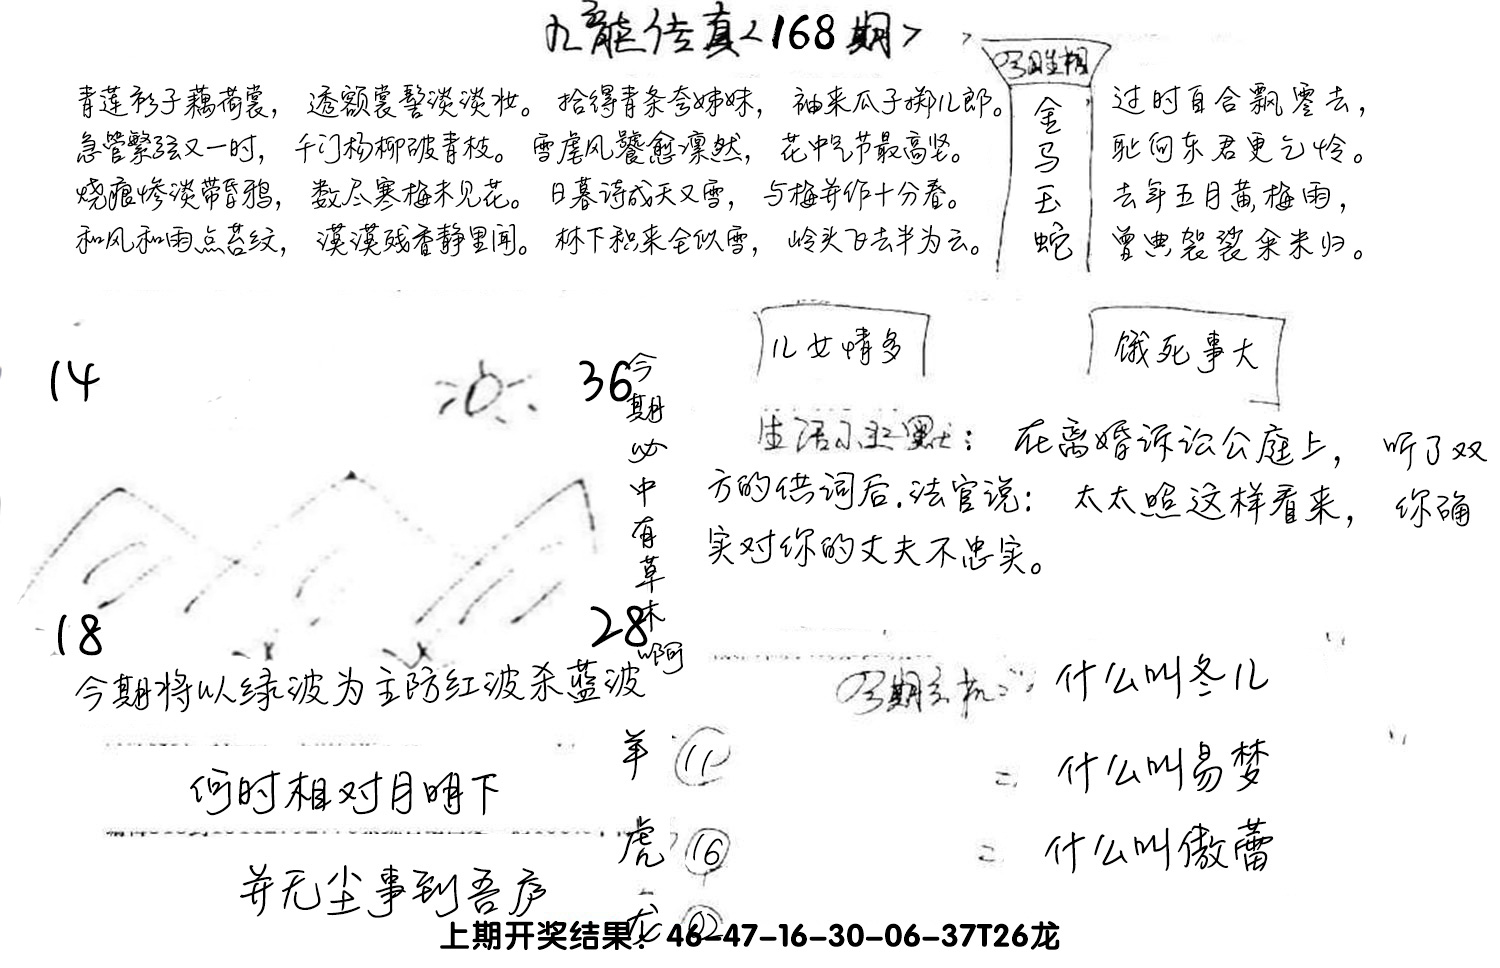 九龍传真<168期>
今期生相
金马玉蛇
青莲衫子藕荷裳，透额裳髻淡淡妆。拾得青条夸姊妹，袖来瓜子掷儿郎。
急管繁弦又一时，千门杨柳破青枝。雪虐风饕愈凛然，花中气节最高坚。
烧痕惨淡带昏鸦，数尽寒梅未见花。日暮诗成天又雪，与梅并作十分春。
和风和雨点苔纹，漠漠残香静里闻。林下积来全似雪，岭头飞去半为云。
过时自合飘零去，
耻向东君更乞怜。
去年五月黄梅雨，
曾典袈裟余米归。
儿女情多
饿死事大
14
36
18
28
今期必中有草木啊
生活小幽默：在离婚诉讼公庭上，听了双
方的供词后.法官说：太太照这样看来，你确
实对你的丈夫不忠实。
今期将以绿波为主防红波杀蓝波
今期玄机：什么叫冬儿
= 什么叫易梦
= 什么叫傲蕾
何时相对月明下
并无尘事到吾庐
羊 11
虎 16
龙 02
上期开奖结果：46-47-16-30-06-37T26龙